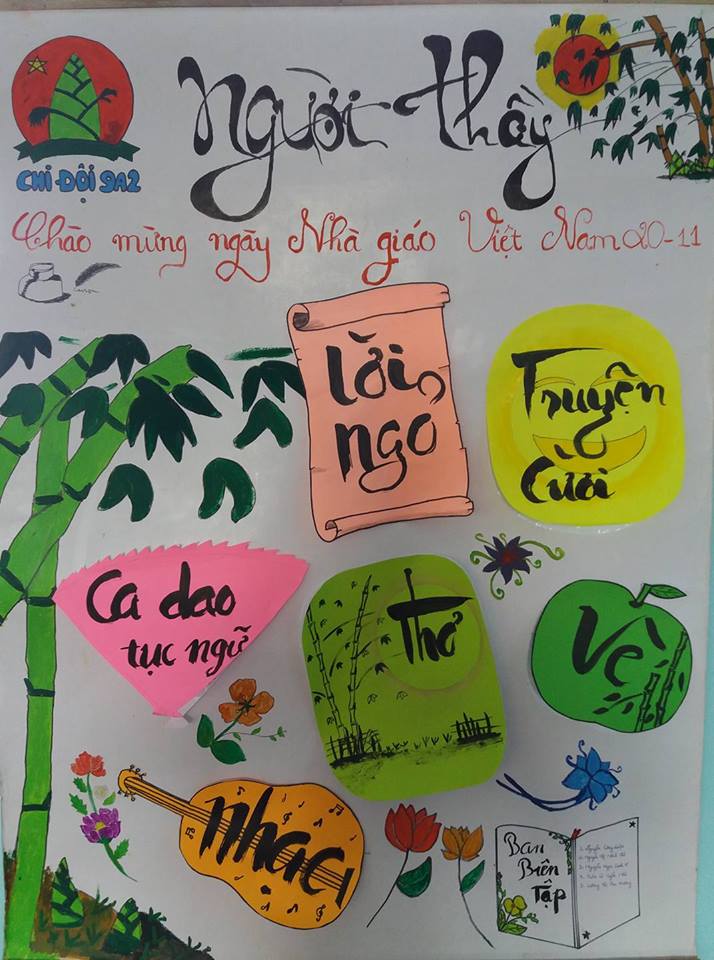 Người Thầy
CHI-ĐỘI 9A2
Chào mừng ngày Nhà giáo Việt Nam 20-11
Lời
ngỏ
Truyện
Cười
Ca dao
tục ngữ
Thơ
Vè
nhạc
Ban
Biên
Tập